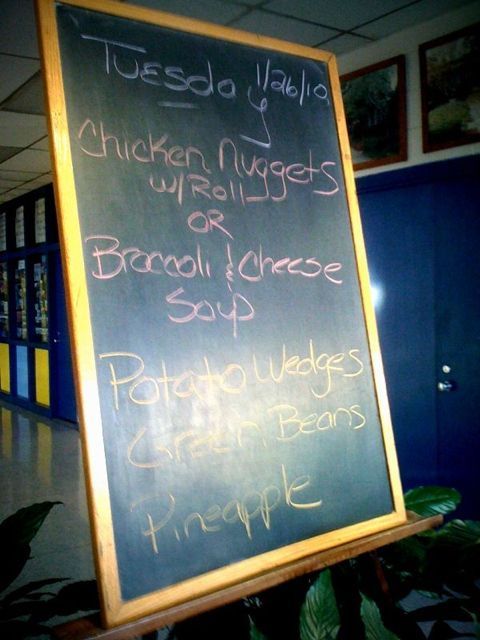 Tuesday 1/26/10
Chicken Nuggets
w/Roll
OR
Broccoli & Cheese
Soup
Potato Wedges
Green Beans
Pineapple